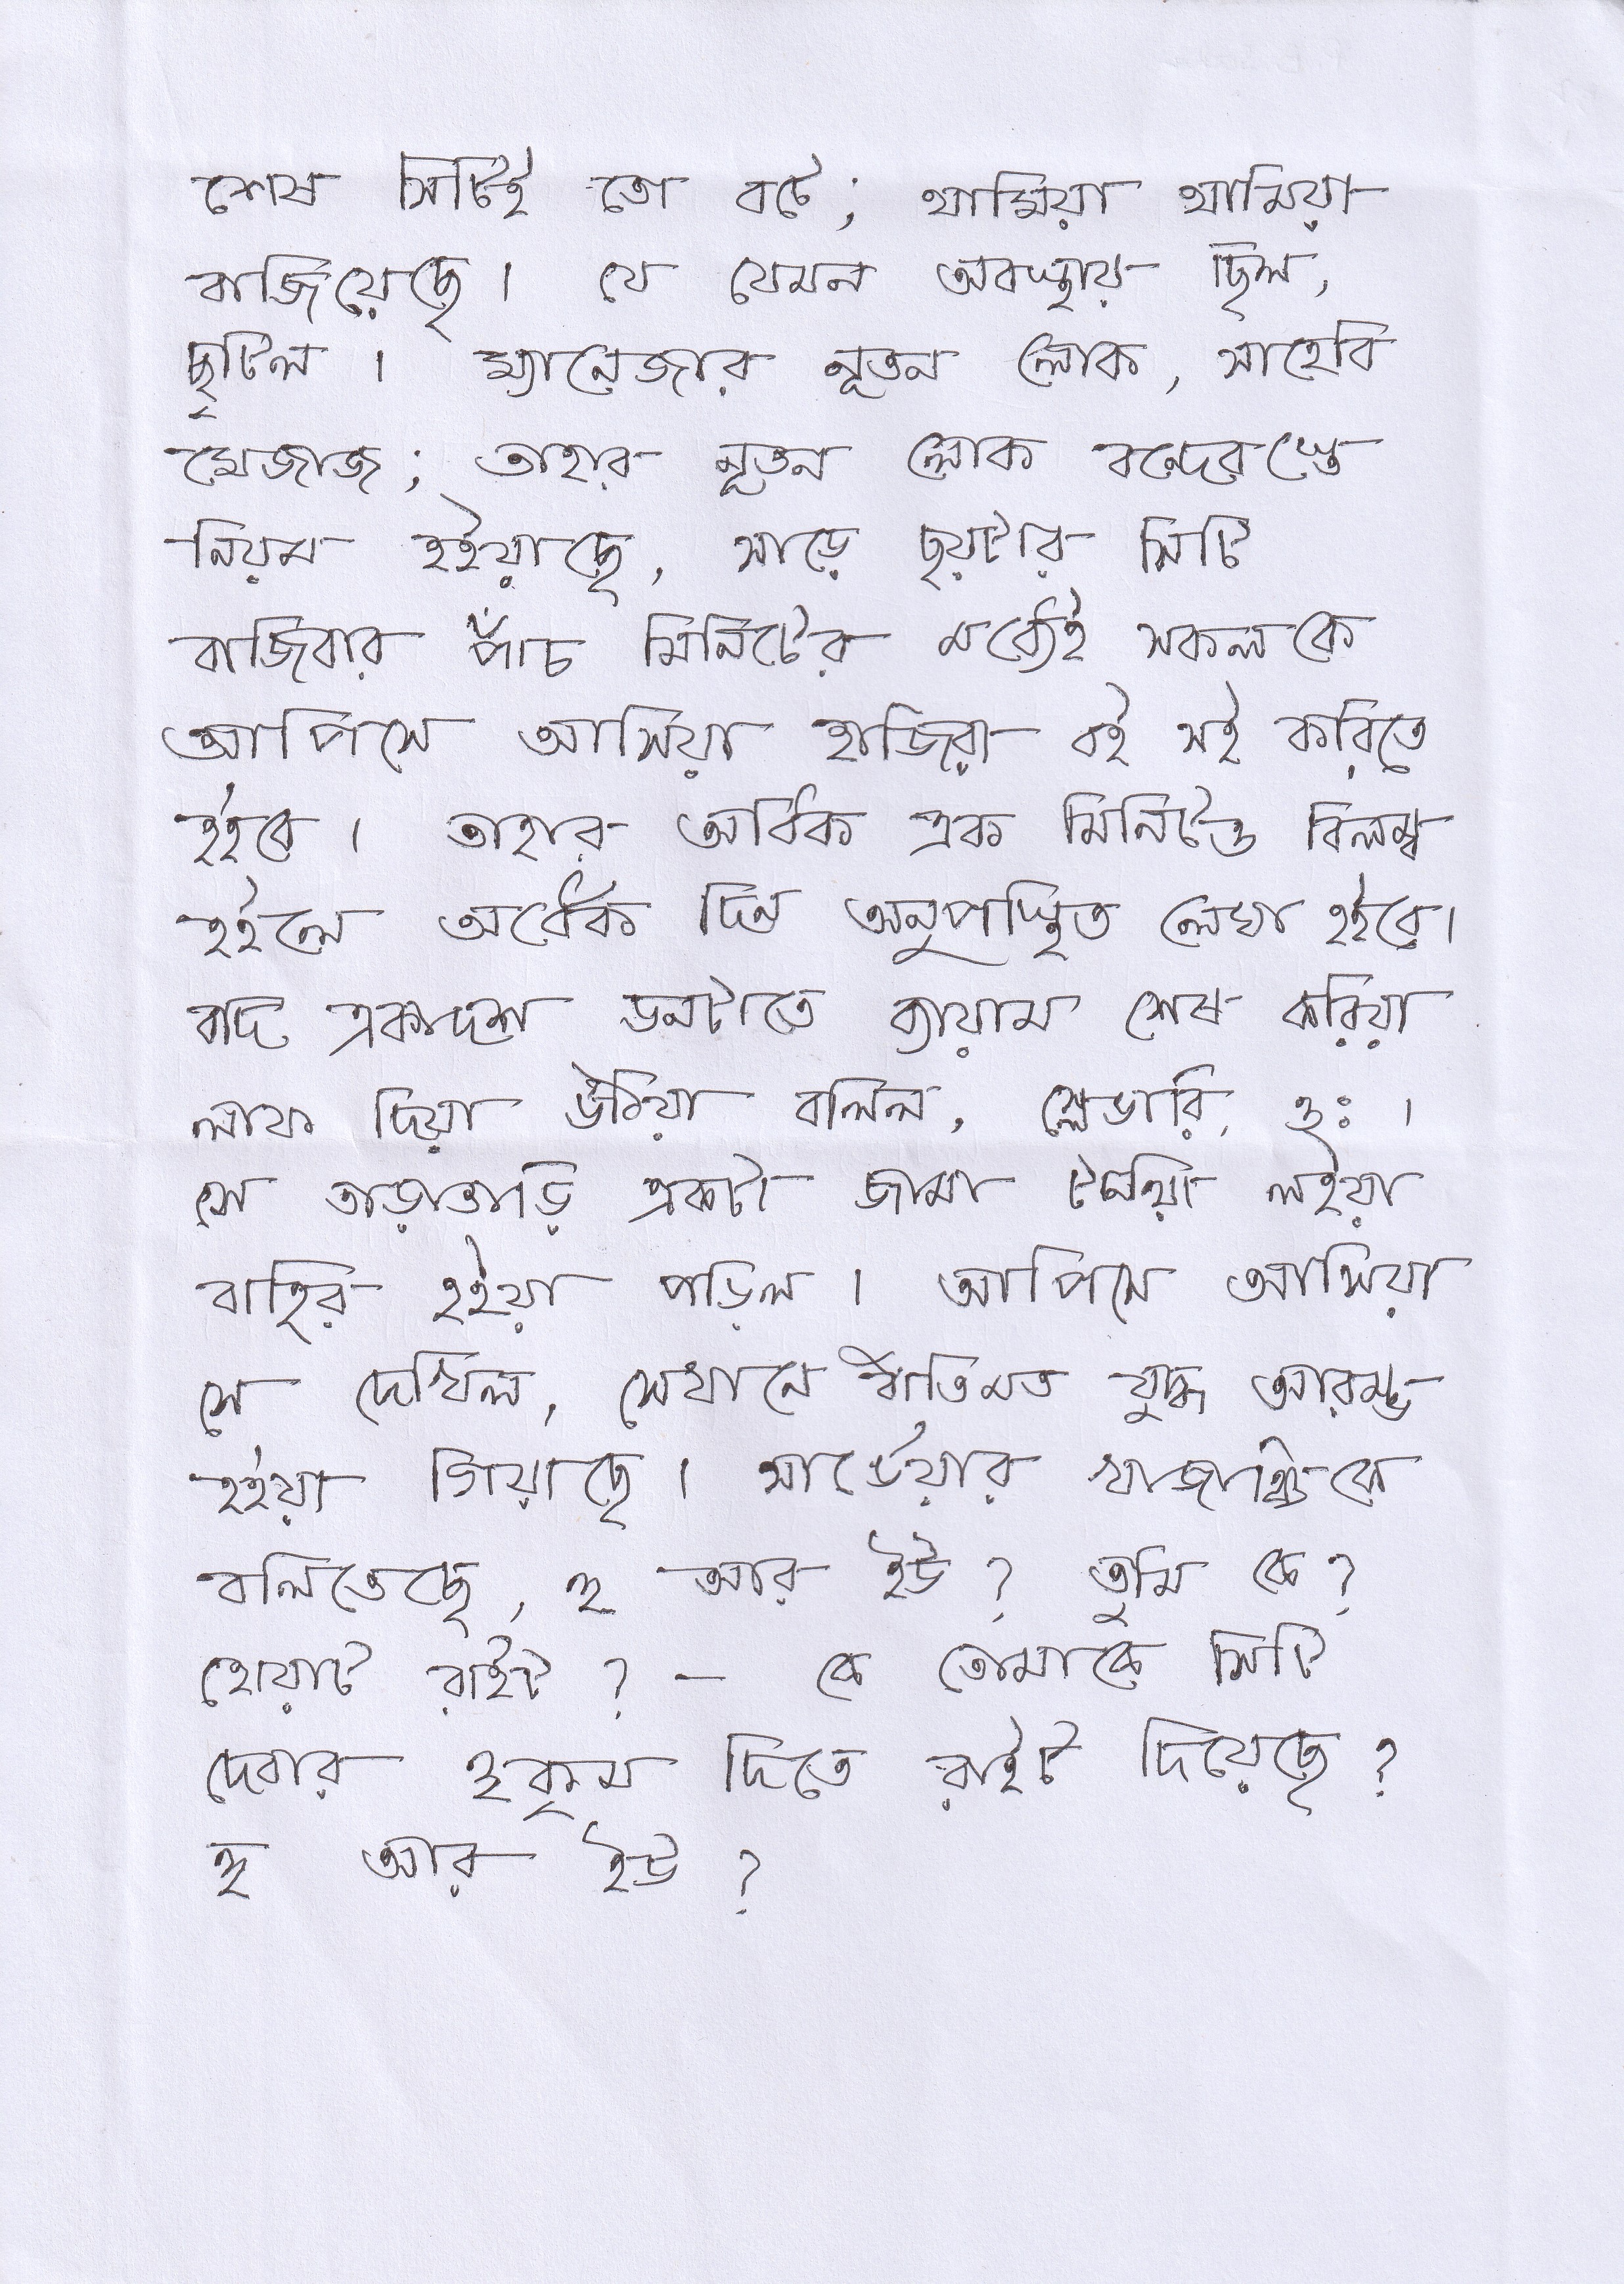 শেষ সিটিই তো বটে; থামিয়া থামিয়া
বাজিয়েছে। যে যেমন অবস্থায় ছিল,
ছুটিল। ম্যানেজার নূতন লোক, সাহেবি
মেজাজ; তাহার নূতন লোক বন্দেরস্তে
নিয়ম হইয়াছে, সাড়ে ছয়টার সিটি
বাজিবার পাঁচ মিনিটের মধ্যেই সকলকে
আপিসে আসিয়া হাজিরা বই সই করিতে
হইবে। তাহার অধিক এক মিনিটও বিলম্ব
হইলে অর্ধেক দিন অনুপস্থিত লেখা হইবে।
বাদ একাদশ ডনটাতে ব্যায়াম শেষ করিয়া
লাফ দিয়া উঠিয়া বলিল, স্লেভারি, ওঃ।
সে তাড়াতাড়ি একটা জামা টানিয়া লইয়া
বাহির হইয়া পড়িল। আপিসে আসিয়া
সে দেখিল, সেখানে রীতিমত যুদ্ধ আরম্ভ
হইয়া গিয়াছে। সার্ভেয়ার খাজাঞ্চিকে
বলিতেছে, হু আর ইউ? তুমি কে?
হোয়াট রাইট? - কে তোমাকে সিটি
দেবার হুকুম দিতে রাইট দিয়েছে?
হু আর ইউ?